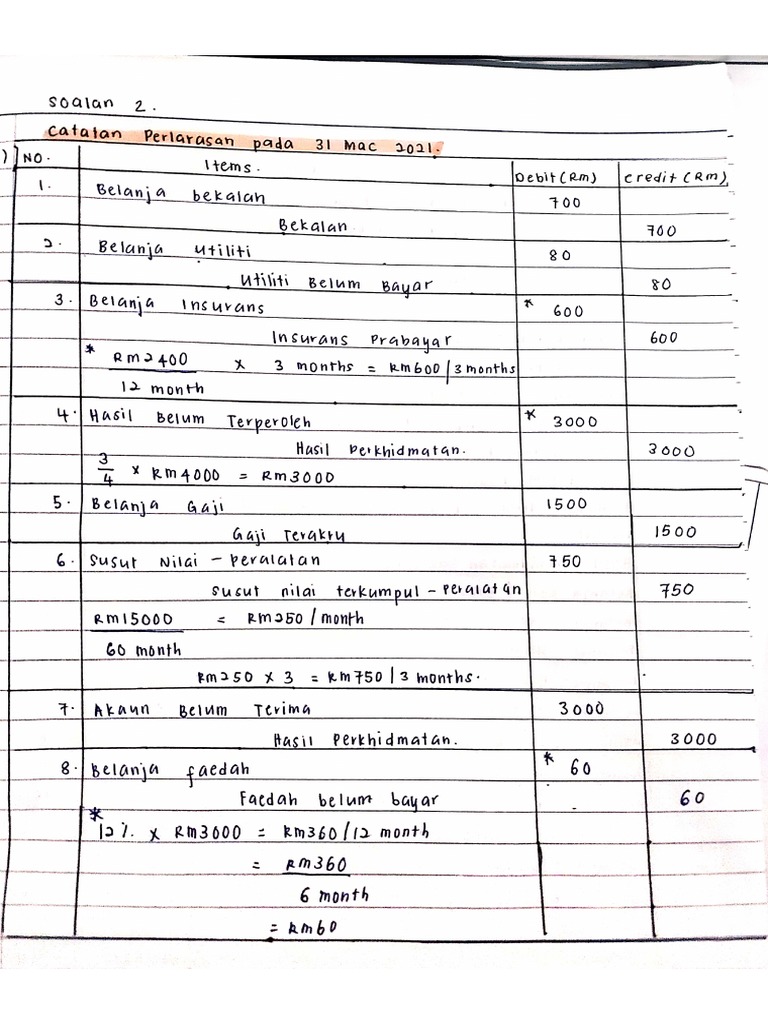 Soalan 2.
Catatan Perlarasan pada 31 Mac 2021.
) NO. Items. Debit (Rm) Credit (Rm)
1. Belanja bekalan 700
Bekalan 700
2. Belanja utiliti 80
Utiliti Belum Bayar 80
3. Belanja Insurans * 600
Insurans Prabayar 600
* Rm2400 x 3 months = Rm600 / 3 months
12 month
4. Hasil Belum Terperoleh * 3000
Hasil Perkhidmatan. 3000
3/4 x Rm4000 = Rm3000
5. Belanja Gaji 1500
Gaji Terakru 1500
6. Susut Nilai - Peralatan 750
Susut nilai terkumpul - Peralatan 750
Rm15000 = Rm250 / month
60 month
Rm250 x 3 = Rm750 / 3 months.
7. Akaun Belum Terima 3000
Hasil Perkhidmatan. 3000
8. Belanja faedah * 60
Faedah belum bayar 60
*
12% x Rm3000 = Rm360 / 12 month
= Rm360
6 month
= Rm60